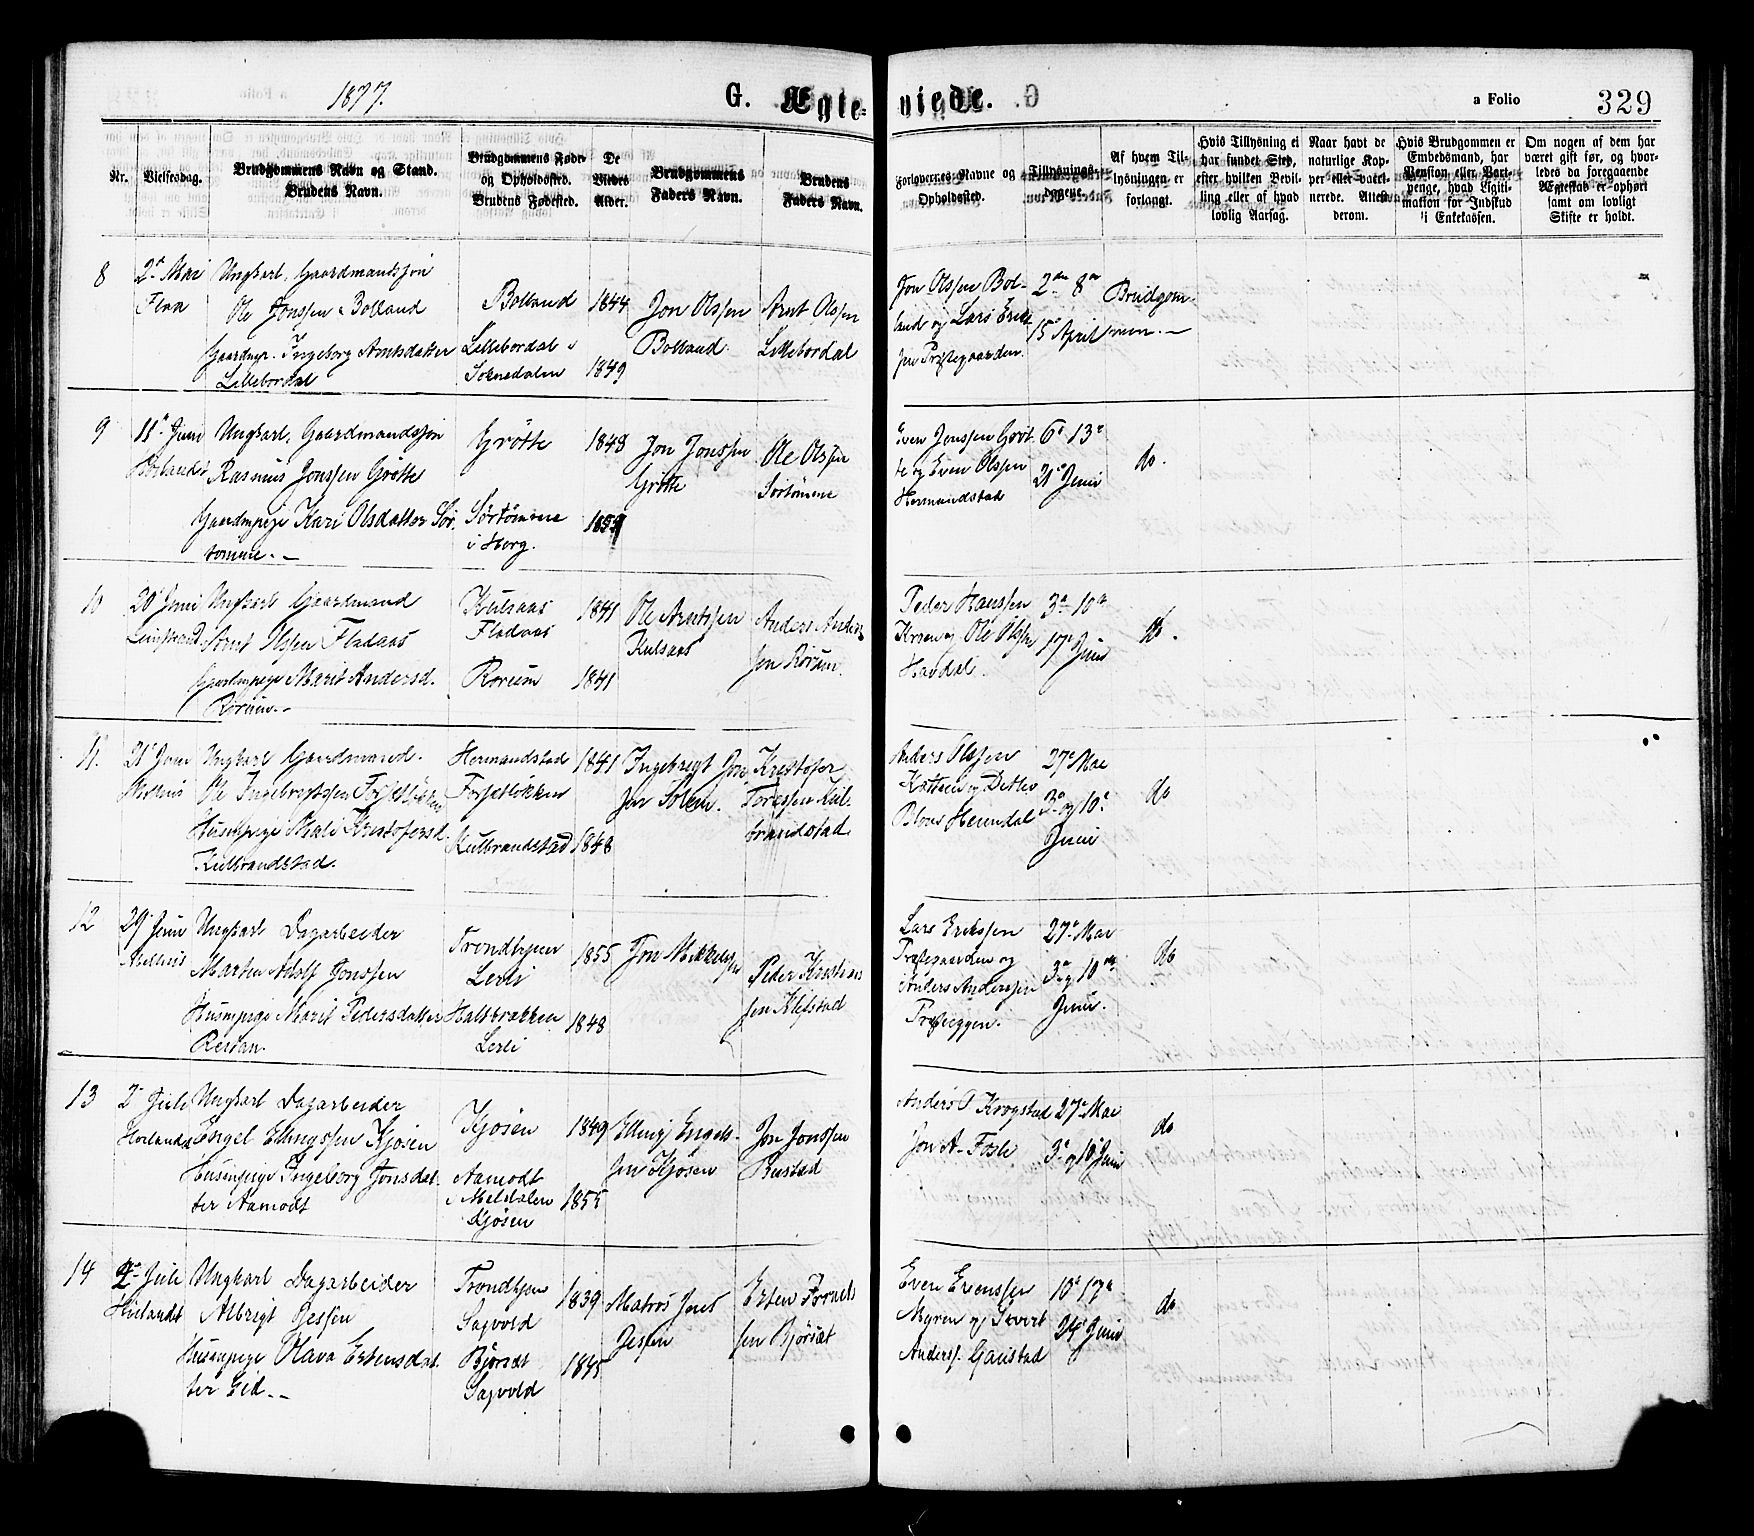 1877.
G. Ægteviede.
a Folio
329
Nr.
Vielsesdag.
Brudgommens Navn og Stand.
Brudens Navn.
Brudgommens Føde-
og Opholdssted.
Brudens Fødested.
De
Viedes
Alder.
Brudgommens
Faders Navn.
Brudens
Faders Navn.
Forlovernes Navne og
Opholdssted.
Tillysnings-
dagene.
Af hvem Til-
lysningen er
forlangt.
Hvis Tillysning ei
har fundet Sted,
efter hvilken Bevil-
ling eller af hvad
lovlig Aarsag.
Naar havt de
naturlige Kop-
per eller vacci-
nerede. Attest
derom.
Hvis Brudgommen er
Embedsmand, har
Pension eller Vart-
penge, hvad Legiti-
mation for Indskud
i Enkekassen.
Om nogen af dem har
været gift før, og hvor-
ledes da foregaaende
Ægteskab er ophørt
samt om lovligt
Skifte er holdt.
8
2 Mai
Flaa
Ungkarl, Gaardmandssøn
Ole Jonssen Bolland
Gaardmp. Ingeborg Arntsdatter
Lillebordal
Bolland
Lillebordal i
Soknedalen
1844
1849
Jon Olssen
Bolland
Arnt Olssen
Lillebordal
Jon Olssen Bol-
land og Lars Erik
sen Præstegaarden.
2 8
15 April
Brudgom-
men.
9
11 Juni
Horlandet
Ungkarl, Gaardmandssøn
Rasmus Jonssen Grötte
Gaardmpige Kari Olsdatter Sør
tømme.
Grötte
Sørtømme
i Horg.
1848
Jon Jonssen
Grötte
Ole Olssen
Sørtømme
Even Jonssen Gröt
te og Even Olssen
Hermandstad
6 13
21 Juni
do.
10
20 Juni
Ungkarl Gaardmand
Arnt Olssen Fladaas
Gaardmpige Marit Andersd.
Rorum.
Kulsaas
Fladaas
Rorum
1841
1841
Ole Arntssen
Kulsaas
Anders Anders
sen Rorum.
Peder Hanssen
og Ole Olssen
Havdal.
3 10
17 Juni
do.
11.
21 Juni
Ungkarl Gaardmand.
Ole Ingebregtssen Forsetløkken
Husmpige Mali Kristofersd.
Kulbrandstad.
Hermandstad
Forsetløkken
Kulbrandstad
1841
1848
Ingebregt Jon
sen Solem.
Kristofer
Toressen Kul-
brandstad
Anders Olssen
og Detlev
Blom Heimdal
27 Mai
3 og 10
Juni
do
12
29 Juni
Melhus
Ungkarl Dagarbeider
Martin Adolf Jonssen
Husmpige Marit Pedersdatter
Restan.
Trondhjem
Lerli
Haltbrækken
Lerli
1855
1848
Jon Mikkelssen
Peder Kristian
sen Klefstad
Lars Erikssen
Præstegaarden og
Anders Anderssen
Præsteggen.
27 Mai
3 og 10
Juni.
do
13
2 Juli
Horlandet
Ungkarl Dagarbeider
Engel Ellingssen Kjøsen
Husmpige Ingeborg Jonsdat-
ter Aamodt
Kjøsen
Aamodt
i Meldalen
Kjøsen
1849
1855
Elling Engels-
sen Kjøsen
Jon Jonssen
Bustad
Anders T Krogstad
Jon A. Fosli
27 Mai
3 og 10 Juni
do
14
2 Juli
Horlandet
Ungkarl Dagarbeider
Albrigt Jessen
Husmpige Olava Estensdat-
ter Eid.
Trondhjem
Sagvold
Bjørsæt
Sagvold
1839
1845
Matros Jens
Jessen
Esten Arnts
sen Bjørsæt
Even Evenssen
Myren og Sivert
Anderss. Gaustad
10 17
24 Juni
do